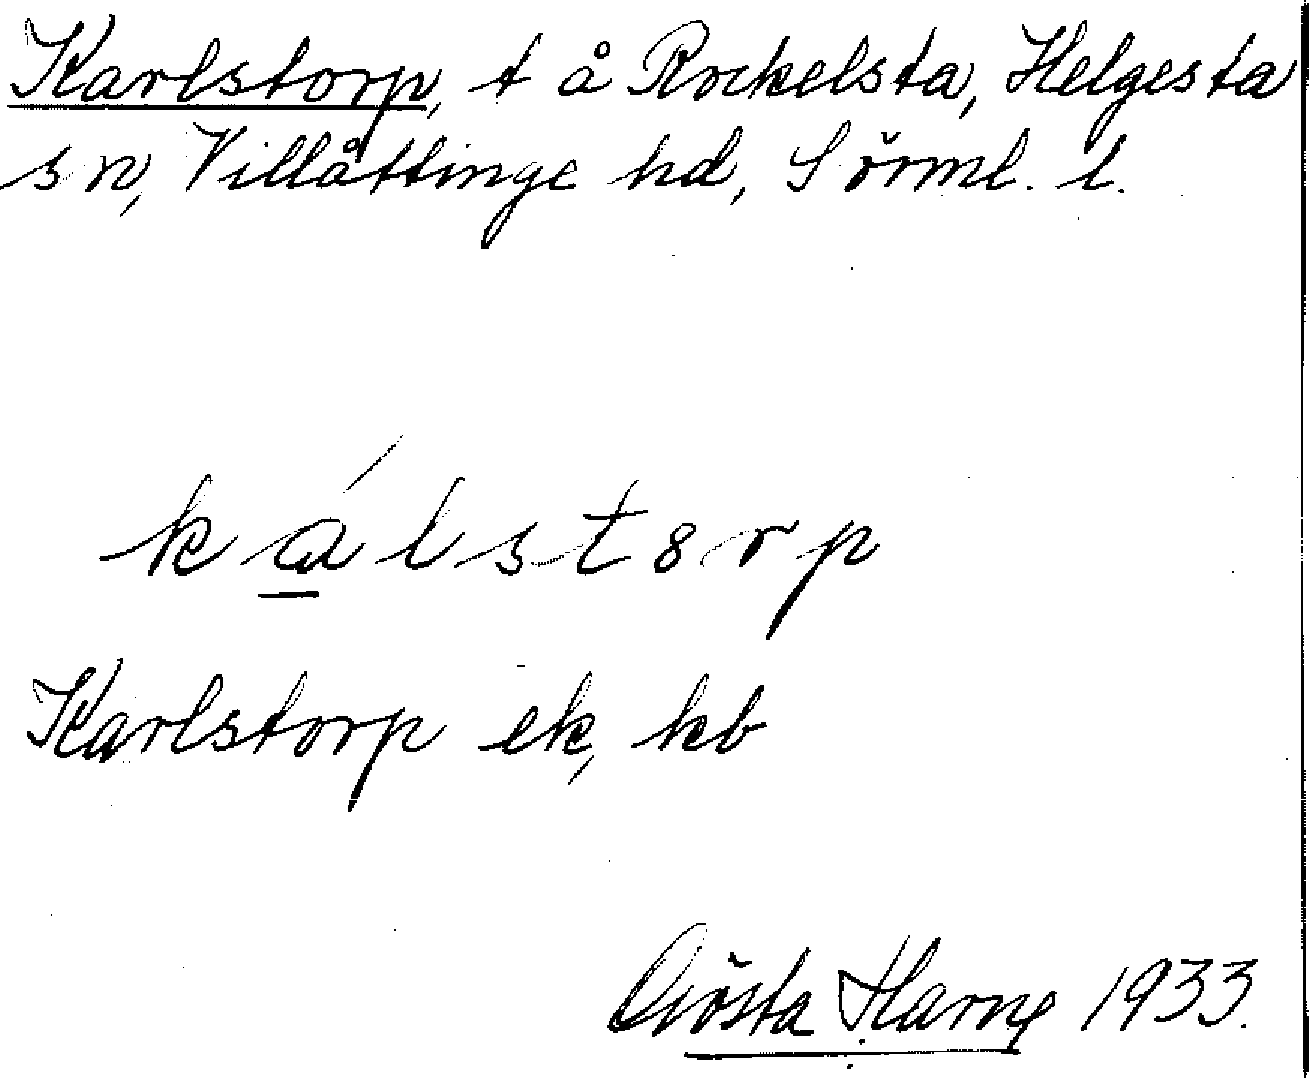 Karlstorp, t å Rockelsta, Helgesta
sn, Villåttinge hd, Sörml. l.
kálstorp
Karlstorp ek, kb
Gösta Harne 1933.